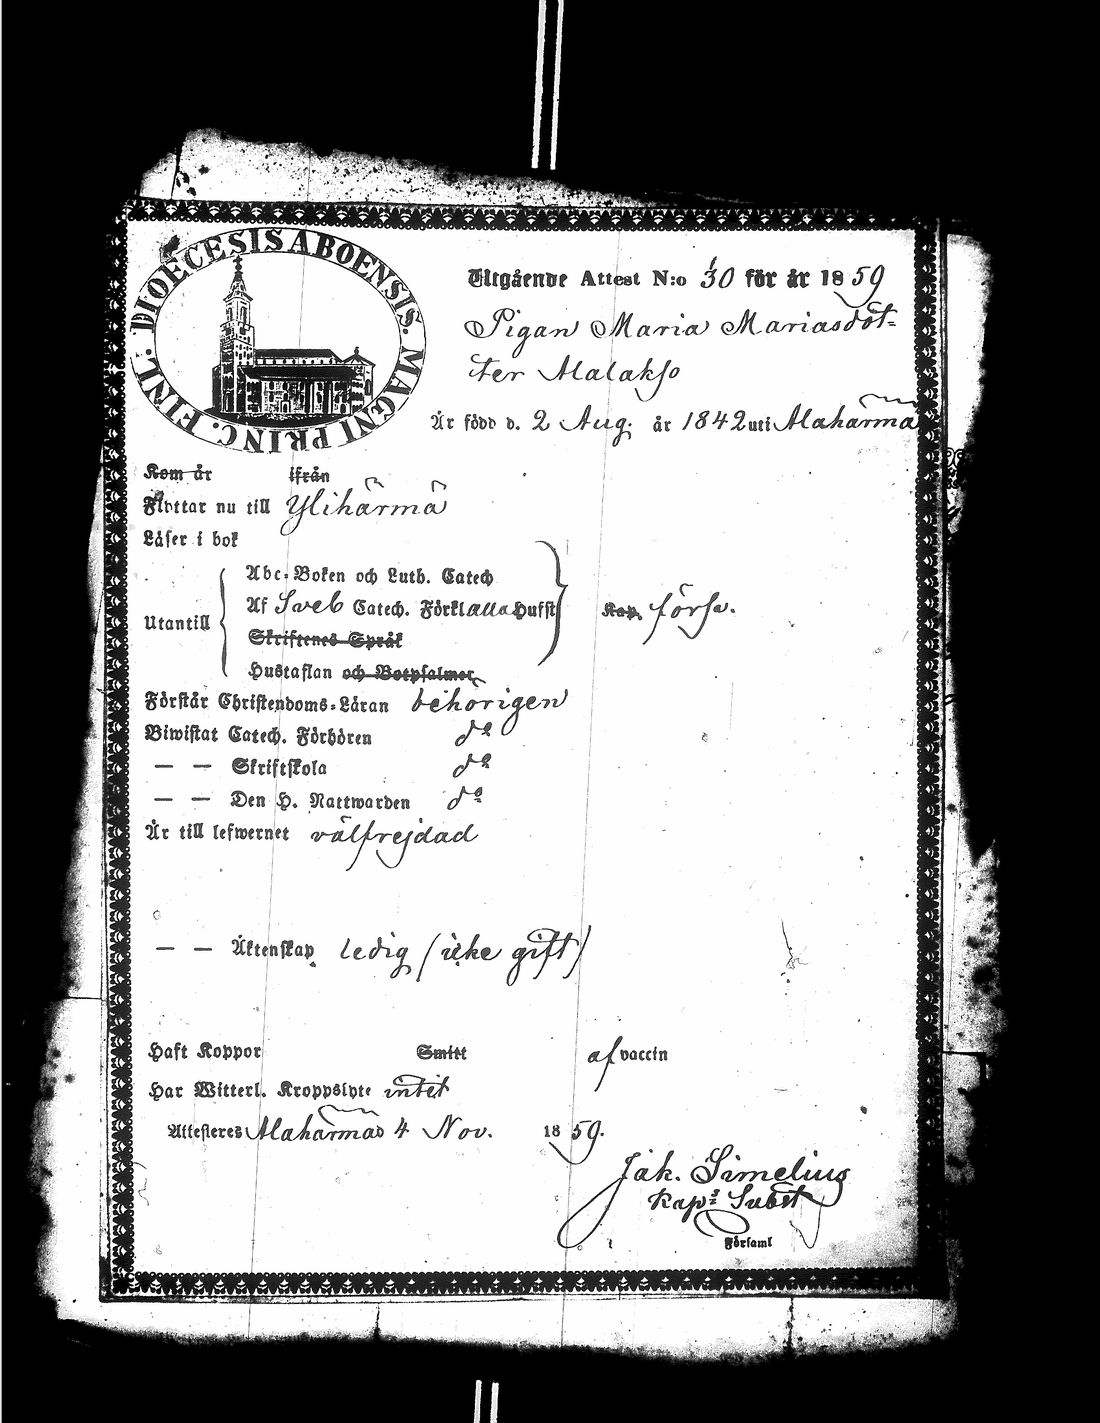 DIOECESIS ABOENSIS. MAGNI PRINC. FINL.
Utgående Attest N:o 30 för år 1859
Pigan Maria Mariasdot=
ter Alalakso
Är född d. 2 Aug. år 1842 uti Alahärmä
Kom år ifrån
Flyttar nu till Ylihärmä
Läser i bok
Abc-Boken och Luth. Catech
Utantill
Af Sveb Catech. Förkl alla Hufst
Kap. försv.
Skriftenes Språk
Hustaflan och Botpsalmer
Förstår Christendoms-Läran behörigen
Biwistat Catech. Förhören do
— — Skriftskola do
— — Den H. Nattwarden do
Är till lefwernet välfrejdad
— — Äktenskap ledig (icke gift)
Haft Koppor Smitt af vaccin
Har Witterl. Kroppslyte intet
Attesteres Alahärmä d 4 Nov. 1859.
Jak. Simelius
Kap: Subst
Församl